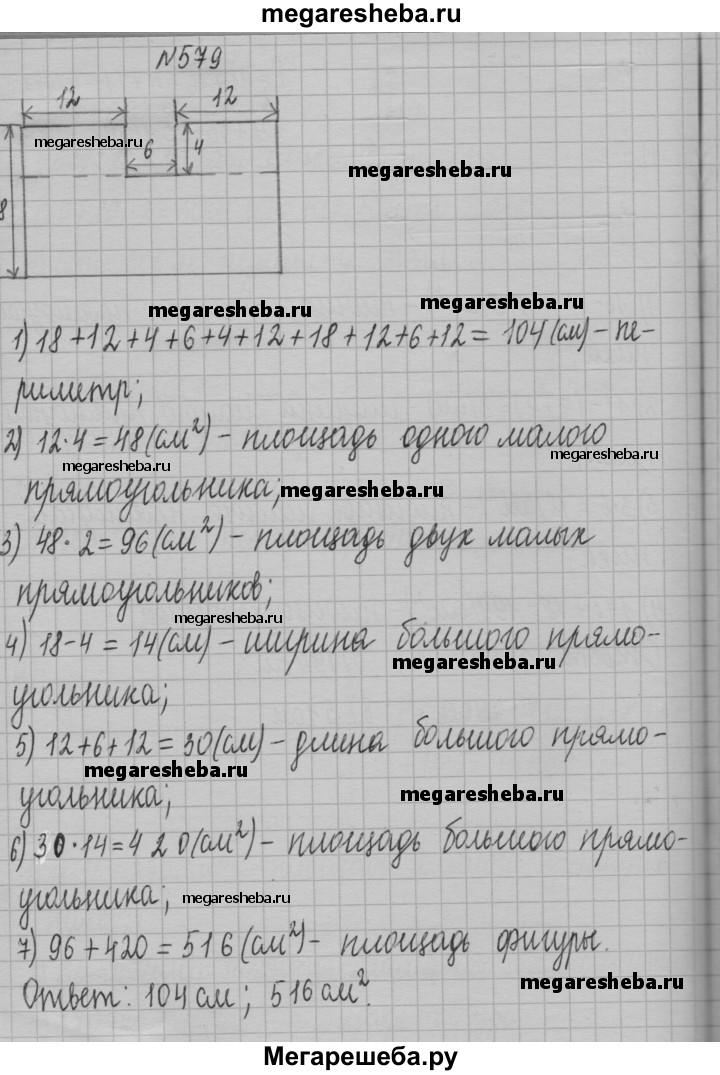 megaresheba.ru
№579
12 12
megaresheba.ru
6 4
megaresheba.ru
8
megaresheba.ru
megaresheba.ru
1) 18+12+4+6+4+12+18+12+6+12= 104(см) – пе-
риметр;
2) 12·4=48(см²) – площадь одного малого
megaresheba.ru
megaresheba.ru
прямоугольника;
megaresheba.ru
3) 48·2=96(см²) – площадь двух малых
прямоугольников;
megaresheba.ru
4) 18-4=14(см) – ширина большого прямо-
megaresheba.ru
угольника;
5) 12+6+12=30(см) – длина большого прямо-
megaresheba.ru
угольника;
megaresheba.ru
6) 30·14=420(см²) – площадь большого прямо-
угольника;
megaresheba.ru
7) 96+420=516(см²) – площадь фигуры.
Ответ: 104 см; 516 см².
megaresheba.ru
Мегарешеба.ру